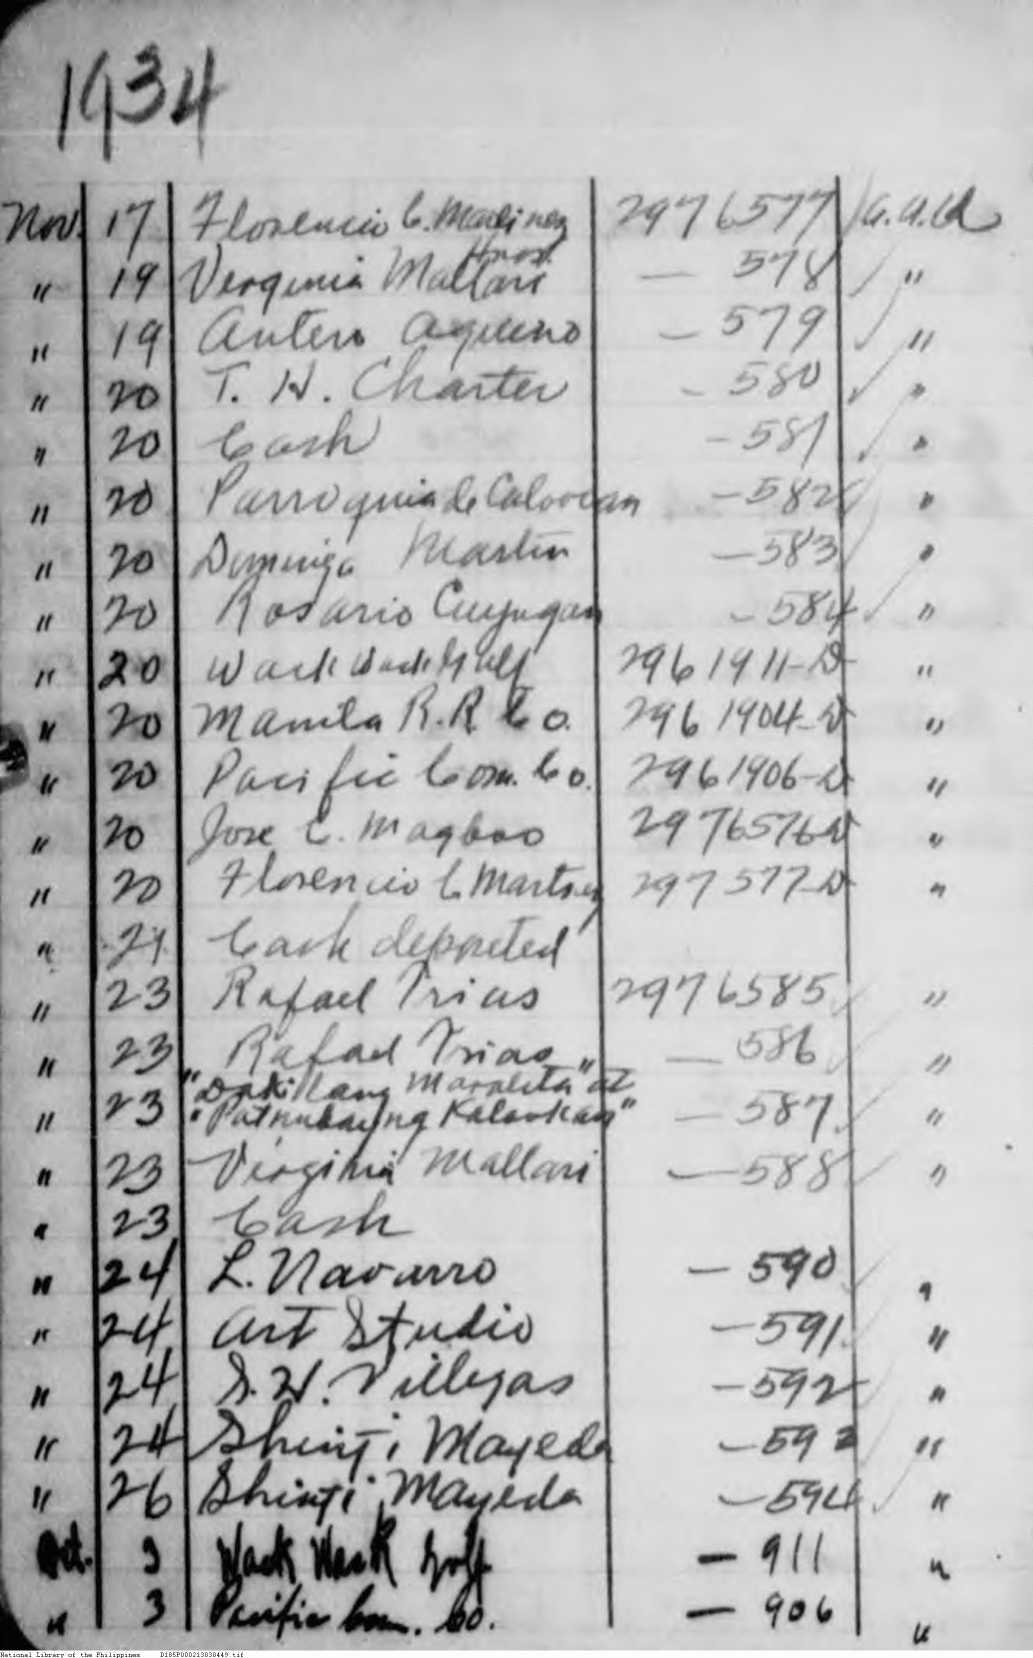 1934
Nov. 17 Florencio C. Martinez 2976577 a.a.d
Hnos.
" 19 Verginia Mallari — 578 "
" 19 Antero Aquino — 579 "
" 20 T. H. Charter - 580 "
" 20 Cash - 581 "
" 20 Parroquia de Caloocan - 582 "
" 20 Domingo Martin - 583 "
" 20 Rosario Cuyugan - 584 "
" 20 Wack Wack Golf 2961911-D "
" 20 Manila R.R. Co. 2961904-D "
" 20 Pacific Com. Co. 2961906-D "
" 20 Jose C. Magboo 2976576-D "
" 20 Florencio C Martinez 297577-D "
" 21 Cash deposited
" 23 Rafael Trias 2976585 "
" 23 Rafael Trias — 586 "
"Dakilang Maralita" at
" 23 "Patnubay ng Kalookan" — 587 "
" 23 Virginia Mallari — 588 "
" 23 Cash
" 24 L. Navarro — 590 "
" 24 Art Studio — 591 "
" 24 S. H. Villegas — 592 "
" 24 Shinji Mayeda — 593 "
" 26 Shinji Mayeda — 594 "
Oct. 3 Wack Wack Golf — 911 "
" 3 Pacific Com. Co. — 906 "
National Library of the Philippines D185P000213838449.tif